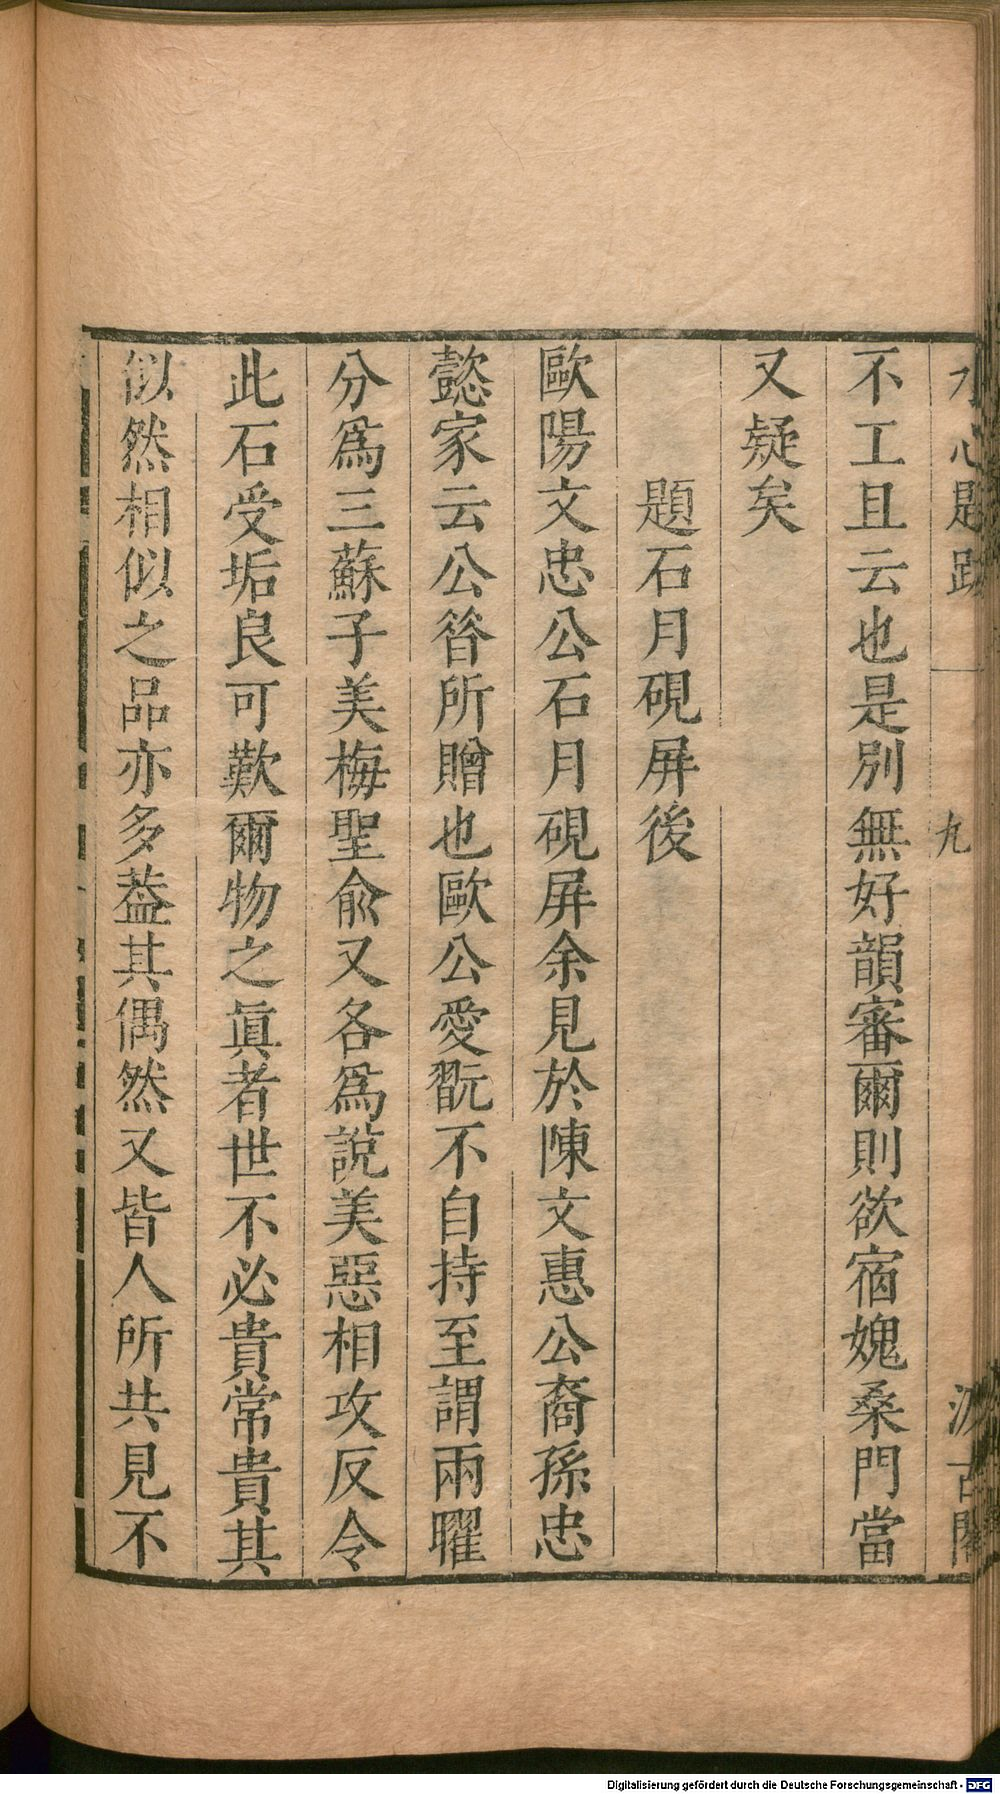 水心題跋 九 汲古閣
不工且云也是別無好韻審爾則欲宿媿桑門當
又疑矣
題石月硯屏後
歐陽文忠公石月硯屏余見於陳文惠公裔孫忠
懿家云公昝所贈也歐公愛翫不自持至謂兩曜
分爲三蘇子美梅聖兪又各爲說美惡相攻反令
此石受垢良可歎爾物之眞者世不必貴常貴其
似然相似之品亦多葢其偶然又皆人所共見不
Digitalisierung gefördert durch die Deutsche Forschungsgemeinschaft - DFG